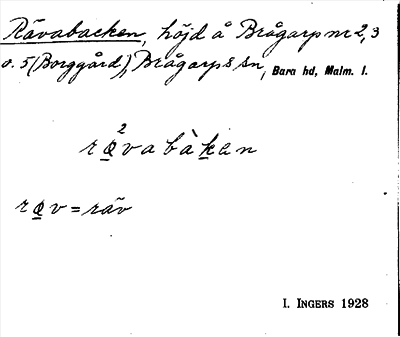 Rävabacken, höjd å Brågarp nr 2, 3
o. 5 (Borggård), Brågarps sn, Bara hd, Malm. l.
rø̱²vabàḵan
rø̱v = räv
I. INGERS 1928